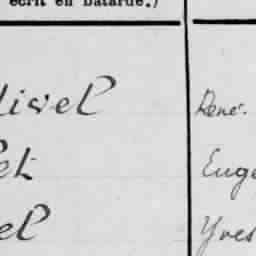 écrit en bâtarde.)
livel René.
et Eugè
el Yves